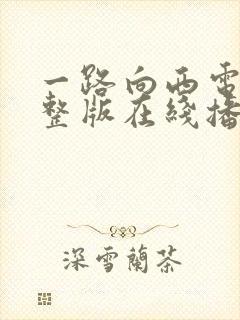 一路向西電
整版在綫播
深雪蘭茶